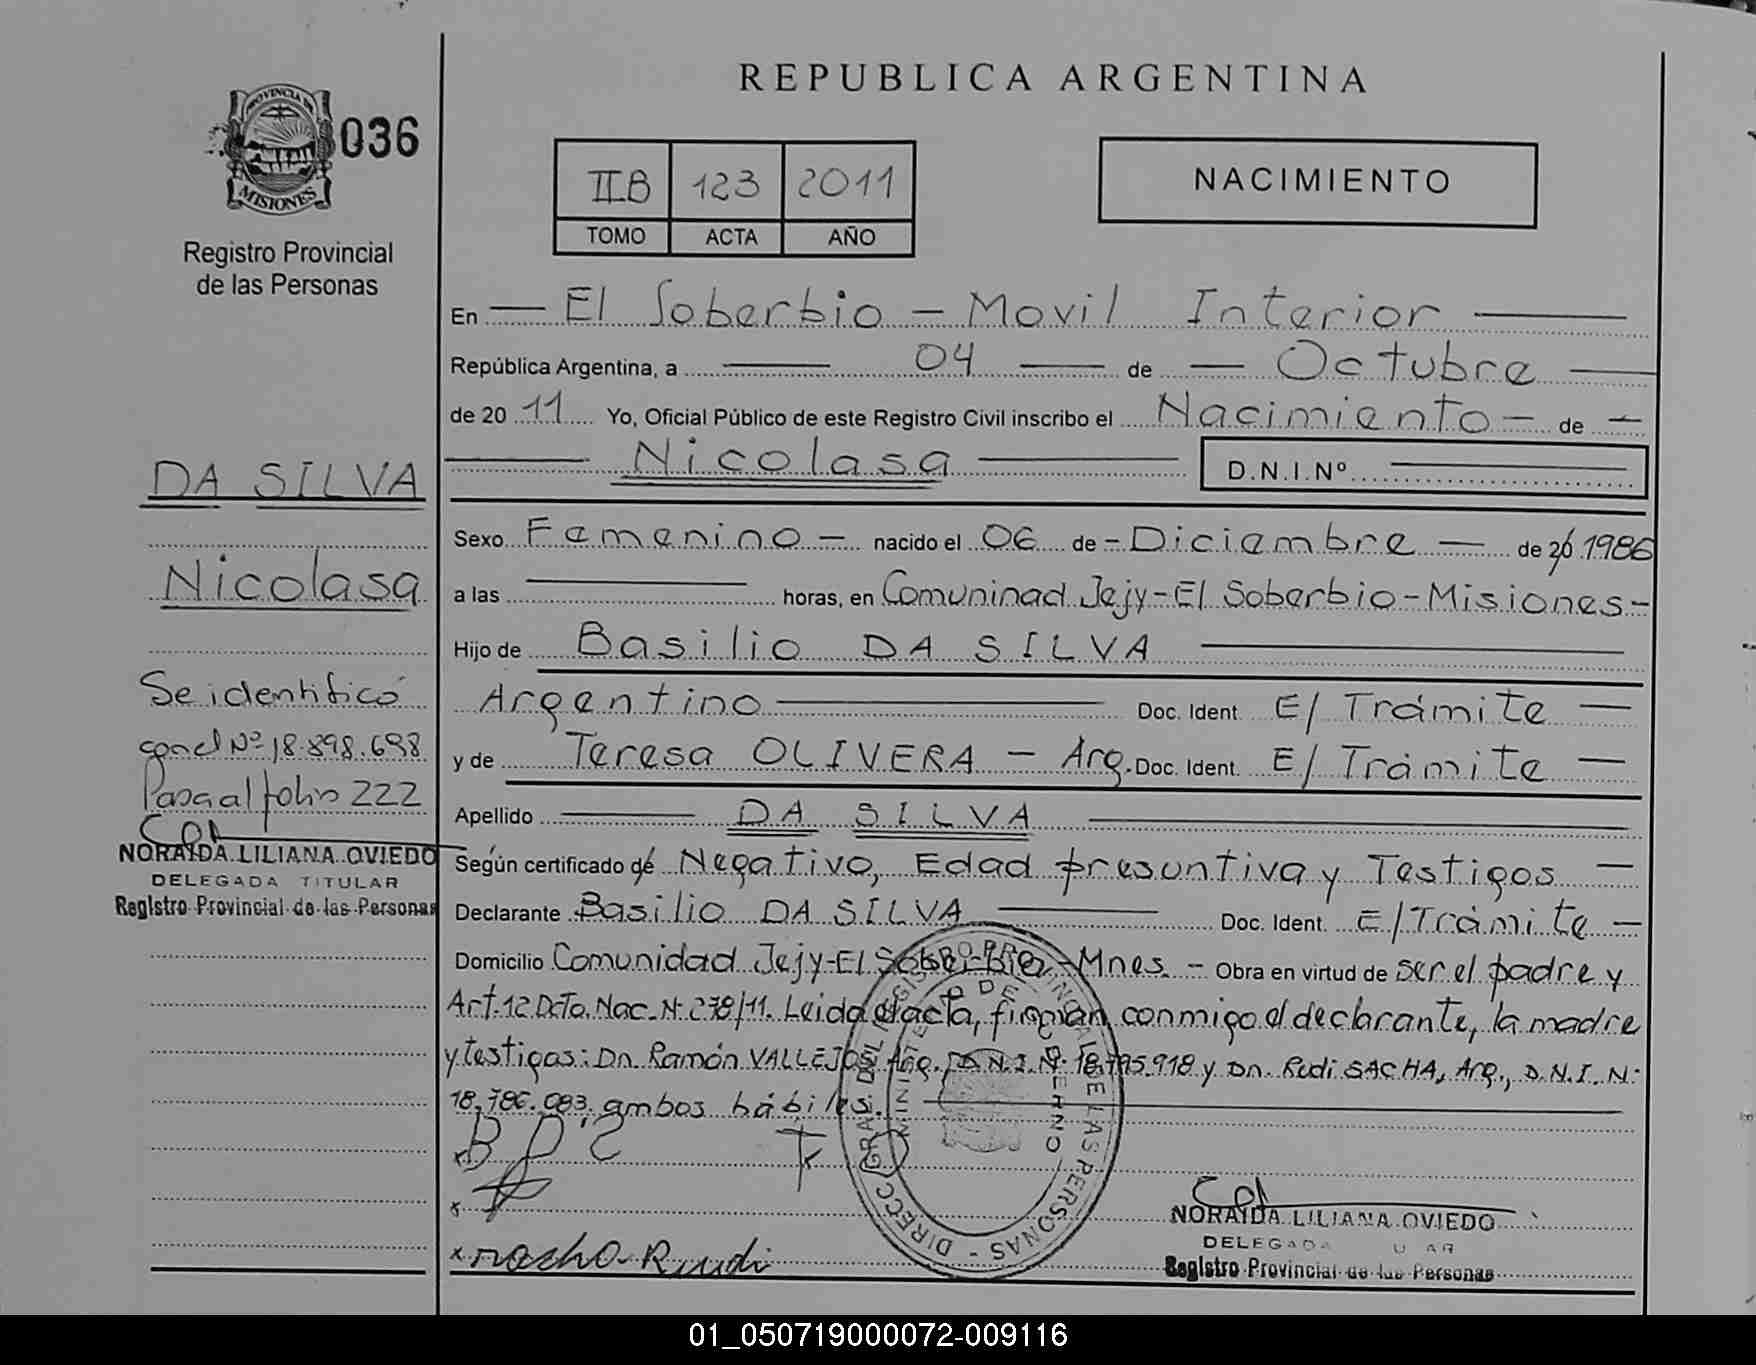 REPUBLICA ARGENTINA
PROVINCIA DE
MISIONES
036
Registro Provincial
de las Personas
IIB 123 2011
TOMO ACTA AÑO
NACIMIENTO
En El Soberbio - Movil Interior
República Argentina, a 04 de Octubre
de 20 11 Yo, Oficial Público de este Registro Civil inscribo el Nacimiento - de -
Nicolasa D.N.I.Nº
Sexo Femenino - nacido el 06 de - Diciembre - de 20 1986
a las horas, en Comuninad Jejy-El Soberbio-Misiones-
Hijo de Basilio DA SILVA
Argentino Doc. Ident. E/ Trámite -
y de Teresa OLIVERA - Arg. Doc. Ident. E/ Trámite -
Apellido DA SILVA
Según certificado de Negativo, Edad presuntiva y Testigos -
Declarante Basilio DA SILVA Doc. Ident. E/Trámite -
Domicilio Comunidad Jejy-El Soberbio-Mnes. - Obra en virtud de ser el padre y
Art. 12 Dcto. Nac. Nº 278/11. Leida el acta, firman conmigo el declarante, la madre
y testigos: Dn. Ramón VALLEJOS, Arg., D.N.I. Nº 18.795.918 y Dn. Rudi SACHA, Arg., D.N.I. Nº
18.786.083. ambos hábiles.
DA SILVA
Nicolasa
Se identificó
con el Nº 18.898.698
Pasa al folio 222
NORAIDA LILIANA OVIEDO
DELEGADA TITULAR
Registro Provincial de las Personas
B D S T
x
x Rudi
DIRECC. GRAL. DEL REGISTRO PROVINCIAL DE LAS PERSONAS -
MINISTERIO DE GOBIERNO
NORAIDA LILIANA OVIEDO
DELEGADA
Registro Provincial de las Personas
01_050719000072-009116